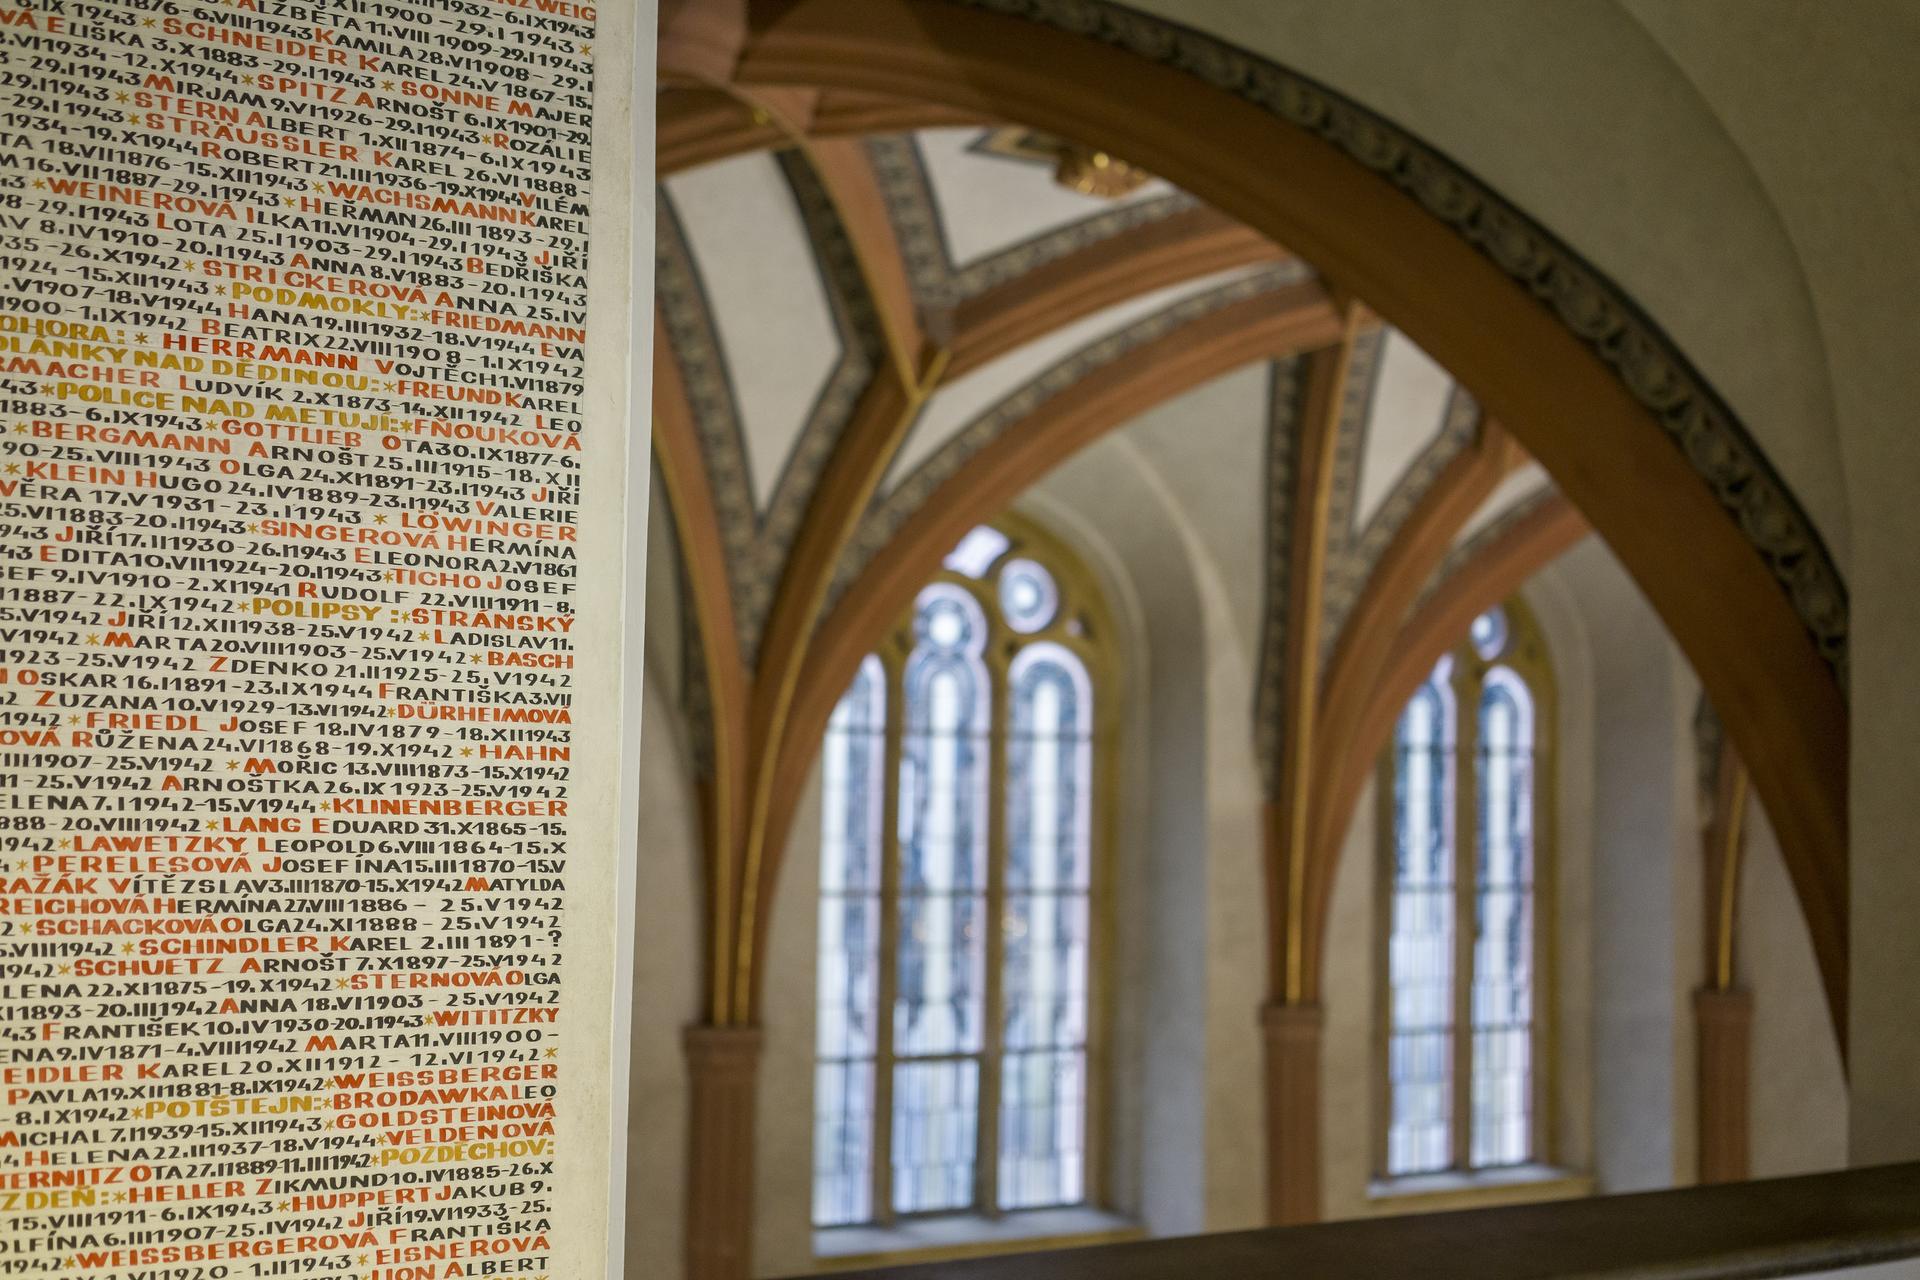 6.IX1943 1876-6.VIII1943 ALŽBĚTA 11.VIII 1909-29.I1943
VÁ ELIŠKA 3.X1883-29.I1943 * SCHNEIDER KAREL 24.V1867-15.
VI1934-12.X1944 * SPITZ ARNOŠT 6.IX1901-29.
29.I1943 MIRJAM 9.VI1926-29.I1943 * ROZÁLIE
29.I1943 * STERN ALBERT 1.XII1874-6.IX1943
1934-19.X1944 ROBERT 21.III1936-19.X1944 VILÉM
TA 18.VII1876-15.XII1943 * WACHSMANN KAREL
M 16.VII1887-29.I1943 * HEŘMAN 26.III 1893-29.I
43 * WEINEROVÁ ILKA 11.VI1904-29.I1943 JIŘÍ
98-29.I1943 LOTA 25.I1903-29.I1943 BEDŘIŠKA
AV 8.IV1910-20.I1943 ANNA 8.V1883-20.I1943
935-26.X1942 * STRICKEROVÁ ANNA 25.IV
1924-15.XII1943 * PODMOKLY: * FRIEDMANN
.V1907-18.V1944 HANA 19.III1932-18.V1944 EVA
1900-1.IX1942 BEATRIX 22.VIII1908-1.IX1942
OHORA: * HERRMANN VOJTĚCH 1.VI1879
OLÁNKY NAD DĚDINOU: * FREUND KAREL
RMACHER LUDVÍK 2.X1873-14.XII1942 LEO
43 * POLICE NAD METUJÍ: * FŇOUKOVÁ
1883-6.IX1943 * GOTTLIEB OTA 30.IX1877-6.
* BERGMANN ARNOŠT 25.III1915-18.XII
90-25.VIII1943 OLGA 24.XI1891-23.I1943 JIŘÍ
* KLEIN HUGO 24.IV1889-23.I1943 VALERIE
VĚRA 17.V1931-23.I1943 * LÖWINGER
25.VI1883-20.I1943 * SINGEROVÁ HERMÍNA
943 JIŘÍ 17.II1930-26.I1943 ELEONORA 2.V1861
43 EDITA 10.VII1924-20.I1943 * TICHO JOSEF
SEF 9.IV1910-2.XI1941 RUDOLF 22.VIII1911-8.
1887-22.IX1942 * POLIPSY: * STRÁNSKÝ
5.V1942 JIŘÍ 12.XII1938-25.V1942 * LADISLAV 11.
V1942 * MARTA 20.VIII1903-25.V1942 * BASCH
1923-25.V1942 ZDENKO 21.II1925-25.V1942
OSKAR 16.I1891-23.IX1944 FRANTIŠKA 3.VII
2 ZUZANA 10.V1929-13.VI1942 * DÜRHEIMOVÁ
1942 * FRIEDL JOSEF 18.IV1879-18.XII1943
OVÁ RŮŽENA 24.VI1868-19.X1942 * HAHN
VIII1907-25.V1942 * MOŘIC 13.VIII1873-15.X1942
11-25.V1942 ARNOŠTKA 26.IX 1923-25.V1942
ELENA 7.I1942-15.V1944 * KLINENBERGER
888-20.VIII1942 * LANG EDUARD 31.X1865-15.
1942 * LAWETZKY LEOPOLD 6.VIII1864-15.X
* PERELESOVÁ JOSEFÍNA 15.III1870-15.V
RAŽÁK VÍTĚZSLAV 3.III1870-15.X1942 MATYLDA
REICHOVÁ HERMÍNA 27.VIII1886-25.V1942
2 * SCHACKOVÁ OLGA 24.XI1888-25.V1942
.VIII1942 * SCHINDLER KAREL 2.III1891-?
1942 * SCHUETZ ARNOŠT 7.X1897-25.V1942
LENA 22.XI1875-19.X1942 * STERNOVÁ OLGA
XI1893-20.III1942 ANNA 18.VI1903-25.V1942
43 FRANTIŠEK 10.IV1930-20.I1943 * WITITZKY
ENA 9.IV1871-4.VIII1942 MARTA 11.VIII1900-
EIDLER KAREL 20.XII1912-12.VI1942 *
PAVLA 19.XII1881-8.IX1942 * WEISSBERGER
-8.IX1942 * POTŠTEJN: * BRODAWKA LEO
MICHAL 7.I1939-15.XII1943 * GOLDSTEINOVÁ
4 HELENA 22.II1937-18.V1944 * VELDENOVÁ
TERNITZ OTA 27.I1889-11.III1942 * POZDĚCHOV:
ZDEŇ: * HELLER ZIKMUND 10.IV1885-26.X
15.VIII1911-6.IX1943 * HUPPERT JAKUB 9.
OLFÍNA 6.III1907-25.IV1942 JIŘÍ 19.VI1933-25.
1942 * WEISSBERGEROVÁ FRANTIŠKA
1.VI1920-1.II1943 * EISNEROVÁ
LION ALBERT